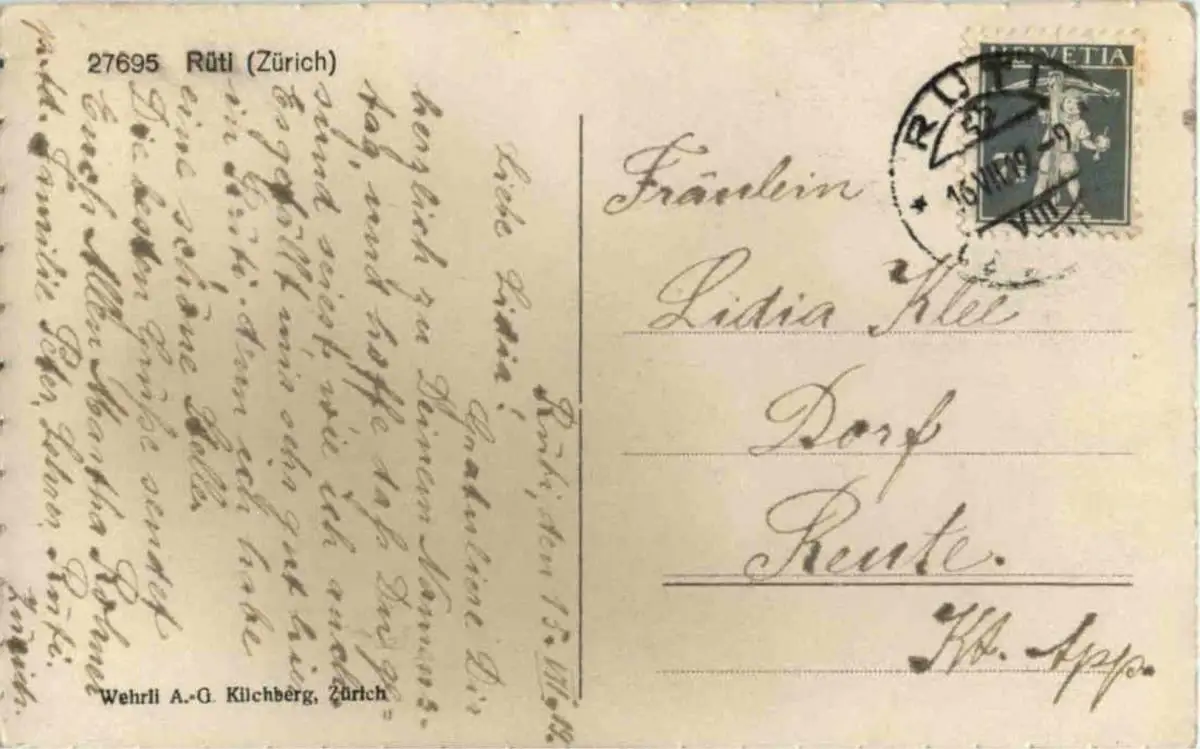 27695 Rüti (Zürich)
HELVETIA
RÜTI
16.VII.19.-9
VIII
Rüti, den 15. VII. 19.
Liebe Lidia!
Gratuliere Dir
herzlich zu Deinem Namens-
tag, und hoffe daß Du ge-
sund seiest wie ich auch.
Es gefällt mir sehr gut hier
in Rüti, denn ich habe
eine schöne Stelle.
Die besten Grüße sendet
Euch Allen Martha Rohner
Familie Peter, Lehrer, Rüti.
Zürich.
Fräulein
Lidia Klee
Dorf
Reute.
Kt. App.
Wehrli A.-G. Kilchberg, Zürich